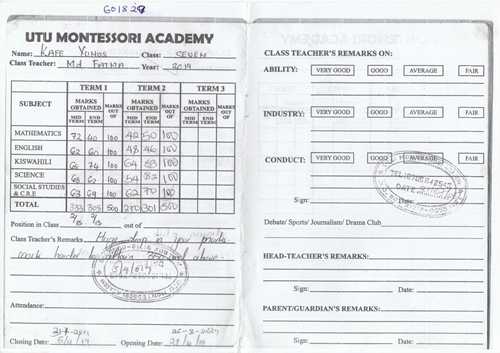 G01829
UTU MONTESSORI ACADEMY
Name: KAFE YUNUS Class: SEVEN
Class Teacher: Md FATMA Year: 2019
TERM 1 TERM 2 TERM 3
SUBJECT MARKS OBTAINED MARKS OUT OF MARKS OBTAINED MARKS OUT OF MARKS OBTAINED MARKS OUT OF
MID TERM END TERM MID TERM END TERM MID TERM END TERM
MATHEMATICS 72 40 100 42 50 100
ENGLISH 62 60 100 48 46 100
KISWAHILI 68 74 100 64 53 100
SCIENCE 68 62 100 54 82 100
SOCIAL STUDIES & C.R.E 63 69 100 62 70 100
TOTAL 333 305 500 270 301 500
Position in Class out of
Class Teacher's Remarks Huge drop in your marks.
work harder to attain 350 and above.
5/4/019
Attendance:
Closing Date: 5/4/19 Opening Date: 29/4/19
CLASS TEACHER'S REMARKS ON:
ABILITY: VERY GOOD GOOD AVERAGE FAIR
INDUSTRY: VERY GOOD GOOD AVERAGE FAIR
CONDUCT: VERY GOOD GOOD AVERAGE FAIR
DATE
Sign: Date:
Debate/ Sports/ Journalism/ Drama Club
HEAD-TEACHER'S REMARKS:
Sign: Date:
PARENT/GUARDIAN'S REMARKS:
Sign: Date: